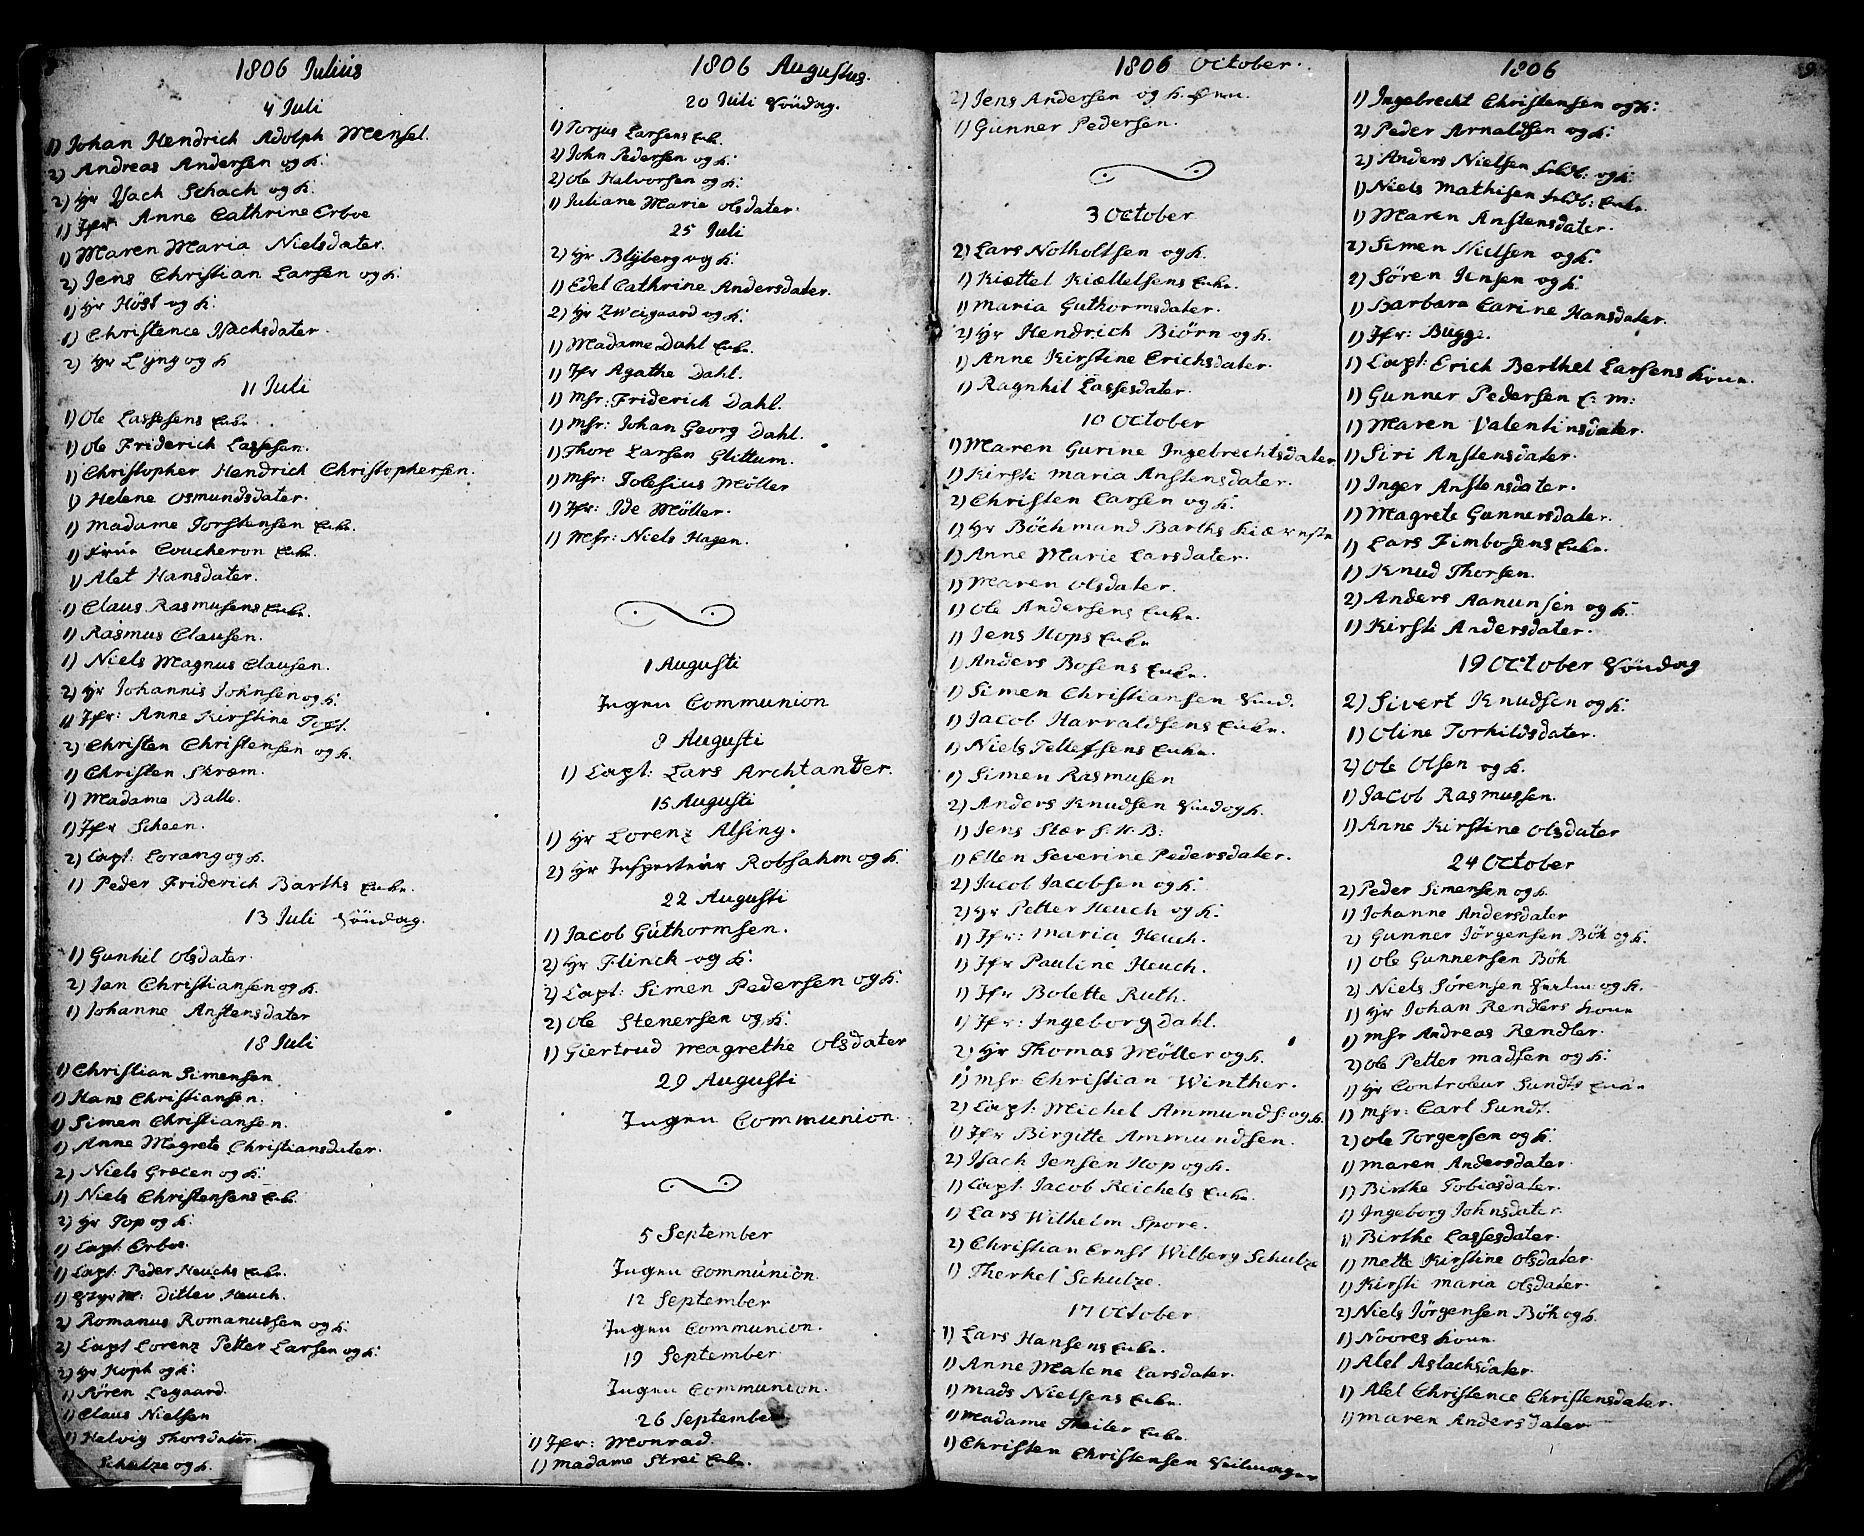 1806 Julius
4 Juli
1) Johan Hendrich Adolph Mensel.
2) Andreas Andersen og k:
2) Hr Isach Schach og k:
1) Jfr Anne Cathrine Erboe
1) Maren Maria Nielsdater.
2) Jens Christian Larsen og k:
1) Hr Höst og k:
1) Christence Isachsdater.
2) Hr Lyng og k
11 Juli
1) Ole Lassesens Enke
1) Ole Friderich Lassesen.
1) Christopher Hendrich Christophersen.
1) Helene Osmundsdater.
1) Madame Torstensen Enke.
1) Frue Coucheron Enk.
1) Alet Hansdater.
1) Claus Rasmusens Enke.
1) Rasmus Clausen.
1) Niels Magnus Clausen.
2) Hr Johannis Johnsen og k:
1) Jfr: Anne Kirstine
2) Christen Christensen og k.
1) Christen Skræm.
1) Madame Balle.
1) Jfr Scheen.
2) Capt: Lorang og k.
1) Peder Friderich Barths Enke.
13 Juli Söndag.
1) Gunhil Olsdater.
2) Jan Christiansen og k.
1) Johanne Anstensdater
18 Juli
1) Christian Simensen
1) Hans Christiansen.
1) Simen Christiansen.
1) Anne Magrete Christiansdater.
2) Niels Græsen og k:
1) Niels Christensens Enke
2) Hr Top og k:
1) Capt Erboe.
1) Capt: Peder Heuchs Enke.
1) Ditlev Heuch.
2) Romanus Romanussen og k:
2) Capt Lorenz Petter Larsen og k:
2) Hr Koph og k:
1) Sören Legaard.
1) Claus Nielsen
1) Helvig Thorsdater
Schulze og k.
1806 Augustus.
20 Juli Söndag.
1) Torjus Larsens Enk.
2) John Pedersen og k:
2) Ole Halvorsen og k:
1) Juliane Marie Olsdater.
25 Juli
2) Hr Blyberg og k:
1) Edel Cathrine Andersdater.
2) Hr Zweigaard og k:
1) Madame Dahl Enke.
1) Jfr Agathe Dahl.
1) Msr: Friderich Dahl.
1) Msr: Johan Georg Dahl.
1) Thore Larsen Glittum.
1) Msr: Tolesius Möller
1) Jfr: Ide Möller.
1) Msr: Niels Hagen.
1 Augusti
Ingen Communion
8 Augusti
1) Capt: Lars Archtander.
15 Augusti
1) Hr Lorenz Alsing.
2) Hr Inspecteur Robsahm og k:
22 Augusti
1) Jacob Guthormsen.
2) Hr Flinck og k:
2) Capt: Simen Pedersen og k:
2) Ole Stenersen og k:
1) Giertrud Magrethe Olsdater
29 Augusti
Ingen Communion.
5 September
Ingen Communion.
12 September
Ingen Communion.
19 September
Ingen Communion.
26 September
1) Jfr: Monrad.
1) Madame Strei Enke.
1806 October.
2) Jens Andersen og k.
1) Gunner Pedersen.
3 October
2) Lars Notholtsen og k.
1) Kiættel Kiættelsens Enke.
1) Maria Guthormsdater.
2) Hr Hendrich Biörn og k.
1) Anne Kirstine Erichsdater.
1) Ragnhil Lassesdater.
10 October
1) Maren Gurine Ingebrechtsdater
1) Kirsti Maria Anstensdater.
2) Christen Larsen og k.
1) Hr Böckmand Barths Kiæreste
1) Anne Marie Larsdater.
1) Maren Olsdater.
1) Ole Andersens Enke.
1) Jens Hops Enke
1) Anders Bosens Enke.
1) Simen Christiansen Sund.
1) Jacob Harraldsens Enke.
1) Niels Tellefsens Enke.
1) Simen Rasmusen
2) Anders Knudsen Sund og k.
1) Jens Stær S. H. B:
1) Ellen Severine Pedersdater.
2) Jacob Jacobsen og k:
2) Hr Petter Heuch og k:
1) Jfr: Maria Heuch.
1) Jfr Pauline Heuch.
1) Jfr Bolette Ruth.
1) Jfr: Ingeborg Dahl.
2) Hr Thomas Möller og k.
1) Msr: Christian Winther.
2) Capt: Michel Ammunds: og k.
1) Jfr Birgitte Ammundsen.
2) Isach Jensen Hop og k.
1) Capt. Jacob Reichels Enke.
1) Lars Wilhelm Spore.
2) Christian Ernst Wilberg Schulze
1) Therkel Schulze.
17 October
1) Lars Hansens Enke.
1) Anne Malene Larsdater.
1) Mads Nielsens Enke.
1) Madame Theiler Enke.
1) Christen Christensen
1806
9
1) Ingebrecht Christensen og k:
2) Peder Arnaldsen og k:
2) Anders Nielsen og k:
1) Niels Mathisen Enke.
1) Maren Anstensdater.
2) Simen Nielsen og k:
2) Sören Jensen og k:
1) Barbara Carine Hansdater.
1) Jfr: Bugge.
1) Capt: Erich Berthel Larsens Kone.
1) Gunner Pedersen E: M:
1) Maren Valentinsdater.
1) Siri Anstensdater.
1) Inger Anstensdater.
1) Magrete Gunnersdater.
1) Lars Fimbosens Enke.
1) Knud Thorsen.
2) Anders Aanunsen og k.
1) Kirsti Andersdater.
19 October Söndag
2) Sivert Knudsen og k:
1) Oline Torkildsdater.
2) Ole Olsen og k.
1) Jacob Rasmussen.
1) Anne Kirstine Olsdater
24 October
2) Peder Simensen og k.
1) Johanne Andersdater
2) Gunner Jörgensen Böh og k.
1) Ole Gunnersen Böh
2) Niels Sörensen og k.
1) Hr Johan Rendlers Kone
1) Msr Andreas Rendler.
2) Ole Petter Madsen og k:
1) Hr Controleur Sundts Enke
1) Msr: Carl Sundt.
2) Ole Torgersen og k:
1) Maren Andersdater.
1) Birthe Tobiasdater.
1) Ingeborg Johnsdater.
1) Birthe Lassesdater.
1) Mette Kirstine Olsdater.
1) Kirsti Maria Olsdater.
2) Niels Jörgensen Böh og k.
1) Noores Kone.
1) Alet Aslachsdater.
1) Alet Christence Christensdater.
1) Maren Andersdater